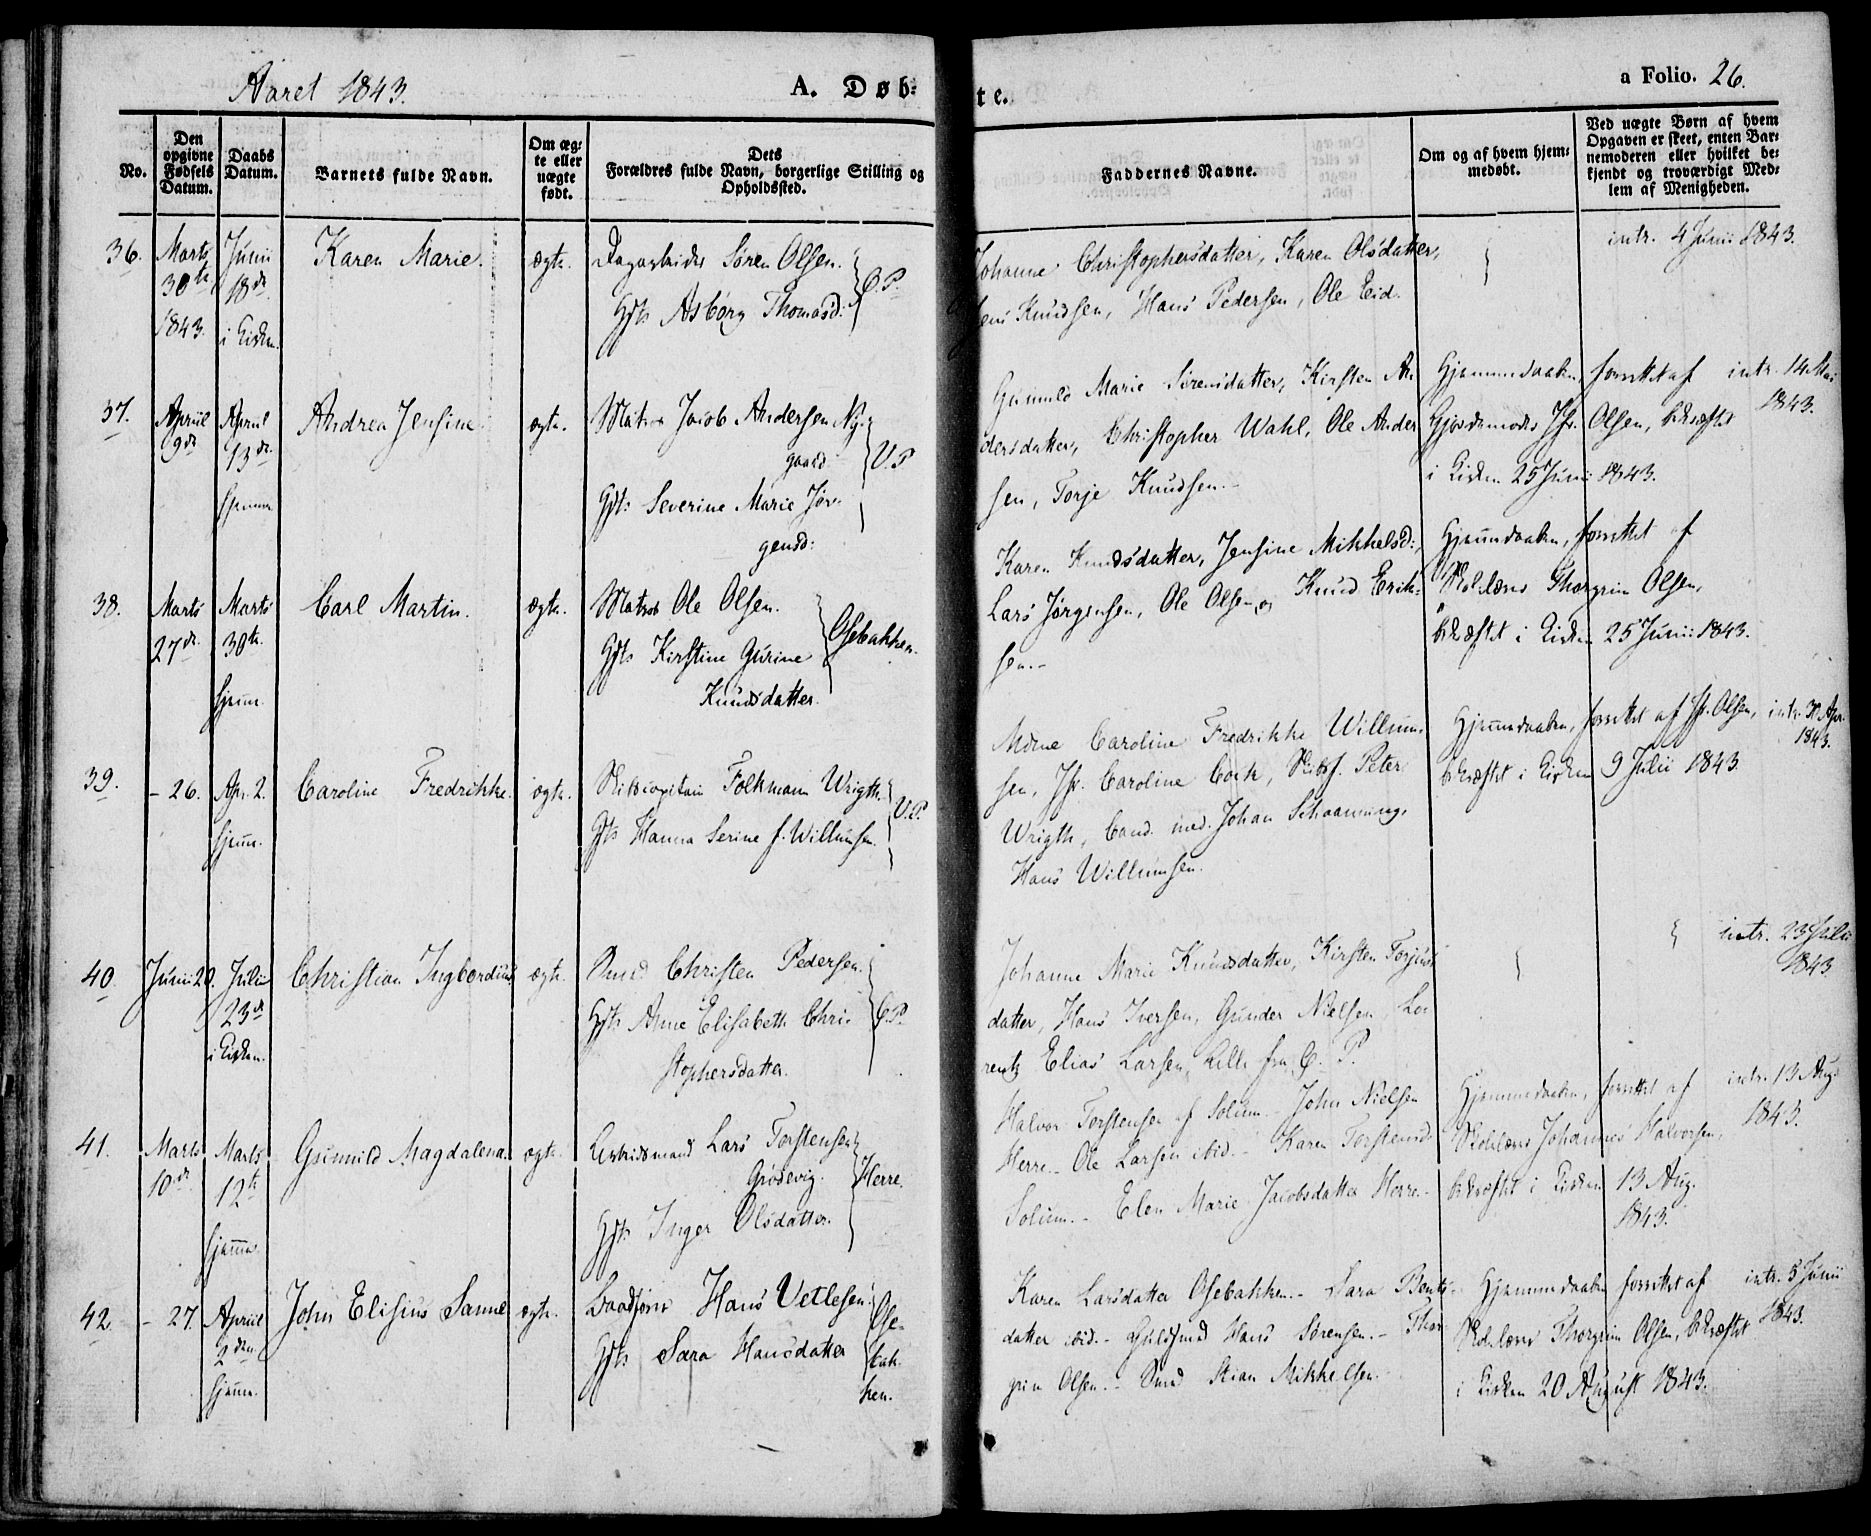 Aaret 1843.
A. Døb-
te.
a Folio. 26.
No.
Den
opgivne
Fødsels
Datum.
Daabs
Datum.
Barnets fulde Navn.
Om æg-
te eller
uægte
født.
Dets
Forældres fulde Navn, borgerlige Stilling og
Opholdssted.
Faddernes Navne.
Om og af hvem hjem-
medøbt.
Ved uægte Børn af hvem
Opgaven er skeet, enten Bar-
nemoderen eller hvilket be-
kjendt og troværdigt Med-
lem af Menigheden.
36.
Marts
30te
1843.
Junii
18de
i Kirken.
Karen Marie.
ægte.
Dagarbeider Søren Olsen.
Hst: Asborg Thomasd:
Johanne Christophersdatter, Karen Olsdatter,
Jens Knudsen, Hans Pedersen, Ole Eid.
intr. 4 Junii 1843.
37.
April
9de
April
13de
hjemme
Andrea Jensine.
ægte.
Matros Jacob Andersen Ny-
gaard
V.P.
Hst: Severine Marie Jør-
gensd:
Gunnild Marie Sørensdatter, Kirsten An
dersdatter, Christopher Wahl, Ole Ander
sen, Torje Knudsen.-
Hjemmedøbt, forrettet af
Gjordemoder Jfr. Olsen, bekræftet
i Kirken 25 Junii 1843.
intr. 14 Mai
1843.
38.
Marts
27de
Marts
30te
hjem.
Carl Martin.
ægte.
Matros Ole Olsen.
Hst: Kirstine Gurine
Knudsdatter.
Osebakken.
Karen Knudsdatter, Jensine Mikkelsd:,
Lars Jørgensen, Ole Olsen og Knud Erik-
sen.-
Hjemmedaaben, forrettet af
Skolelærer Thorgrim Olsen,
bekræftet i Kirken 25 Junii 1843.
39.
- 26.
Apr. 2.
hjem.
Caroline Fredrikke.
ægte.
Skibscapitain Folkmann Wrigth.
Hst: Hanna Serine f. Willumsen.
V.P.
Mdme Caroline Fredrikke Willum-
sen, Jfr. Caroline Cock, Skibsf. Peter
Wrigth, Cand. med. Johan Schaanning,
Hans Willumsen.
Hjemmedaaben, forrettet af Jfr. Olsen,
bekræftet i Kirken 9 Julii 1843.
intr. 30 Apr.
1843.
40.
Junii 20.
Julii
23de
i Kirken.
Christian Ingbordius
ægte.
Smed Christen Pedersen.
Hst: Anne Elisabeth Chri-
stophersdatter.
Johanne Marie Knudsdatter, Kirsten Torjus
datter, Hans Iversen, Gunder Nielsen, Lo-
rentz Elias Larsen, alle fra P.
intr. 23 Julii
1843.
41.
Marts
10de
Marts
12te
hjemme.
Gunnild Magdalena.
ægte.
Arbeidsmand Lars Torstensen
Grødevig.
Herre.
Hst: Inger Olsdatter.
Halvor Torstensen af Solum - John Nielsen
Herre - Ole Larsen ibid. - Karen Torstensd:
Solum. - Elen Marie Jacobsdatter Herre.-
Hjemmedaaben, forrettet af
Skolelærer Johannes Halvorsen,
bekræftet i Kirken 13 Aug.
1843.
intr. 13 Aug.
1843.
42.
- 27.
April
2den
hjem.
John Elisius Samuel
ægte.
Baadfører Hans Vetlesen.
Hst: Sara Hansdatter
Ose-
bak-
ken.
Karen Larsdatter Osebakken. - Sara Bents-
datter ibid. - Guldsmed Hans Sørensen. - Thor
grim Olsen. - Smed Stian Mikkelsen.-
Hjemmedaaben forrettet af
Skolelærer Thorgrim Olsen, bekræftet
i Kirken 20 August 1843.
intr. 5 Junii
1843.